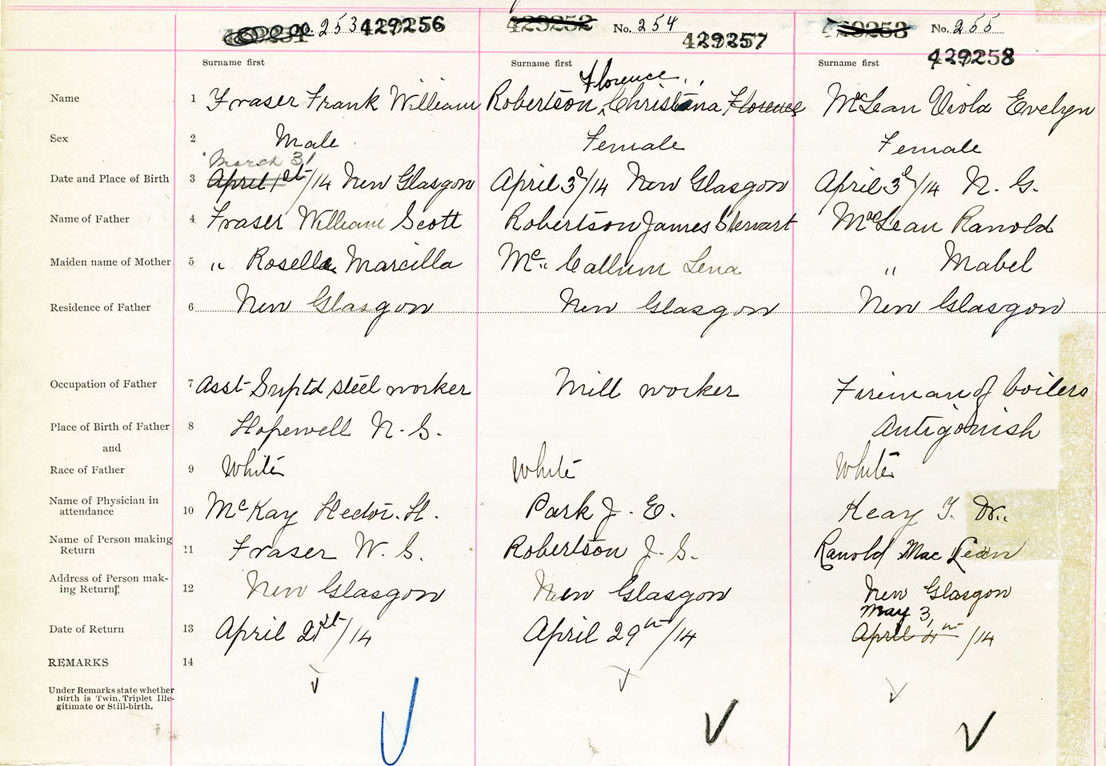 No. 253 429256
429252 No. 254 429257
429253 No. 255 429258
Surname first Surname first Surname first
Florence
Name 1 Fraser Frank William Robertson, Christena Florence McLean Viola Evelyn
Sex 2 Male Female Female
March 31
Date and Place of Birth 3 April 1st/14 New Glasgow April 3d/14 New Glasgow April 3d/14 N. G.
Name of Father 4 Fraser William Scott Robertson James Stewart MacLean Ranold
Maiden name of Mother 5 " Rosella Marcilla Mc" Callum Lena " Mabel
Residence of Father 6 New Glasgow New Glasgow New Glasgow
Occupation of Father 7 Asst-Suptd steel worker Mill worker Fireman of boilers
Place of Birth of Father 8 Hopewell N. S. Antigonish
and
Race of Father 9 White White White
Name of Physician in
attendance 10 McKay Hector. H. Park J. E. Keay T. Dr.
Name of Person making
Return 11 Fraser W. S. Robertson J. S. Ranold MacLean
Address of Person mak-
ing Return 12 New Glasgow New Glasgow New Glasgow
May 3,
Date of Return 13 April 21st/14 April 29th/14 April /14
REMARKS 14
Under Remarks state whether
Birth is Twin, Triplet Ille-
gitimate or Still-birth.